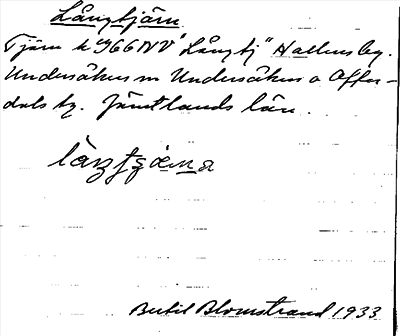 Långtjärn
Tjärn k 966 NV "Långtj" Hallens by.
Undersåkers sn Undersåkers o Offer-
dals tg. Jämtlands län.
Bertil Blomstrand 1933